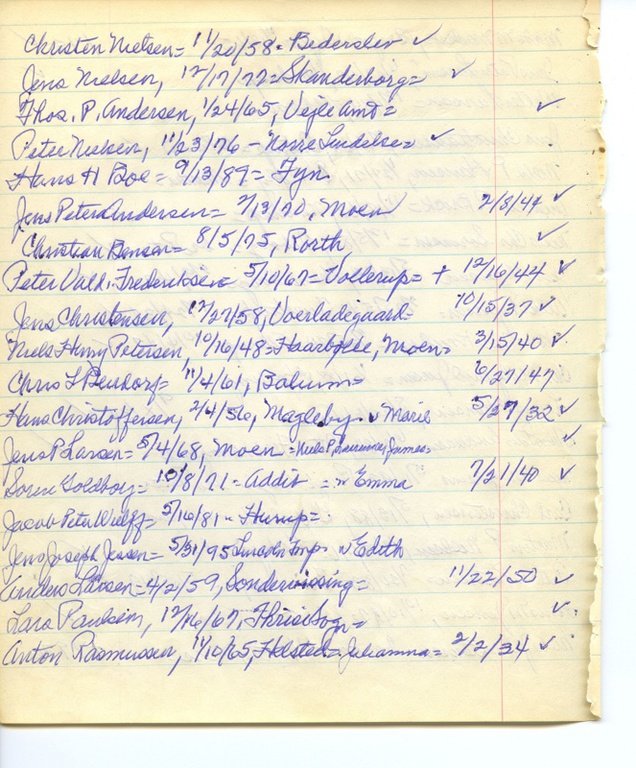 Christen Nielsen = 11/20/58 = Bederslev ✓
Jens Nielsen, 12/17/77 = Skanderborg = ✓
Thos. P. Andersen, 1/24/65, Vejle Amt = ✓
Peter Nielsen, 11/23/76 - Norre Lindelse = ✓
Hans H Boe = 9/13/89 = Fyn
Jens Peter Andersen = 2/13/70, Moen 2/8/44 ✓
Christian Benson = 8/5/75, Rorth ✓
Peter Vald. Frederiksen = 5/10/67 = Vollerup = + 12/16/44 ✓
Jens Christensen, 12/27/58, Voerladegaard = 10/15/37 ✓
Niels Henry Petersen, 10/16/48 = Haarbølle, Moen = 3/15/40 ✓
Chris L Bendorf = 11/4/61, Balum = 6/27/47
Hans Christoffersen, 2/4/56, Magleby. w Marie 5/27/32 ✓
Jens P. Larsen = 5/4/68, Moen = Niels P, James = ✓
Soren Goldborg = 10/8/71 = Addit = w Emma 7/21/40 ✓
Jacob Peter Wulff = 5/16/81 = Hurup =
Jens Joseph Jensen = 5/31/95 Lincoln Twp. w Edith
Anders Larsen = 4/2/59, Sondervissing = 11/22/50 ✓
Lars Paulsen, 12/16/67, Sogn = ✓
Anton Rasmussen, 11/10/65, Holsted = Julianna = 2/2/34 ✓